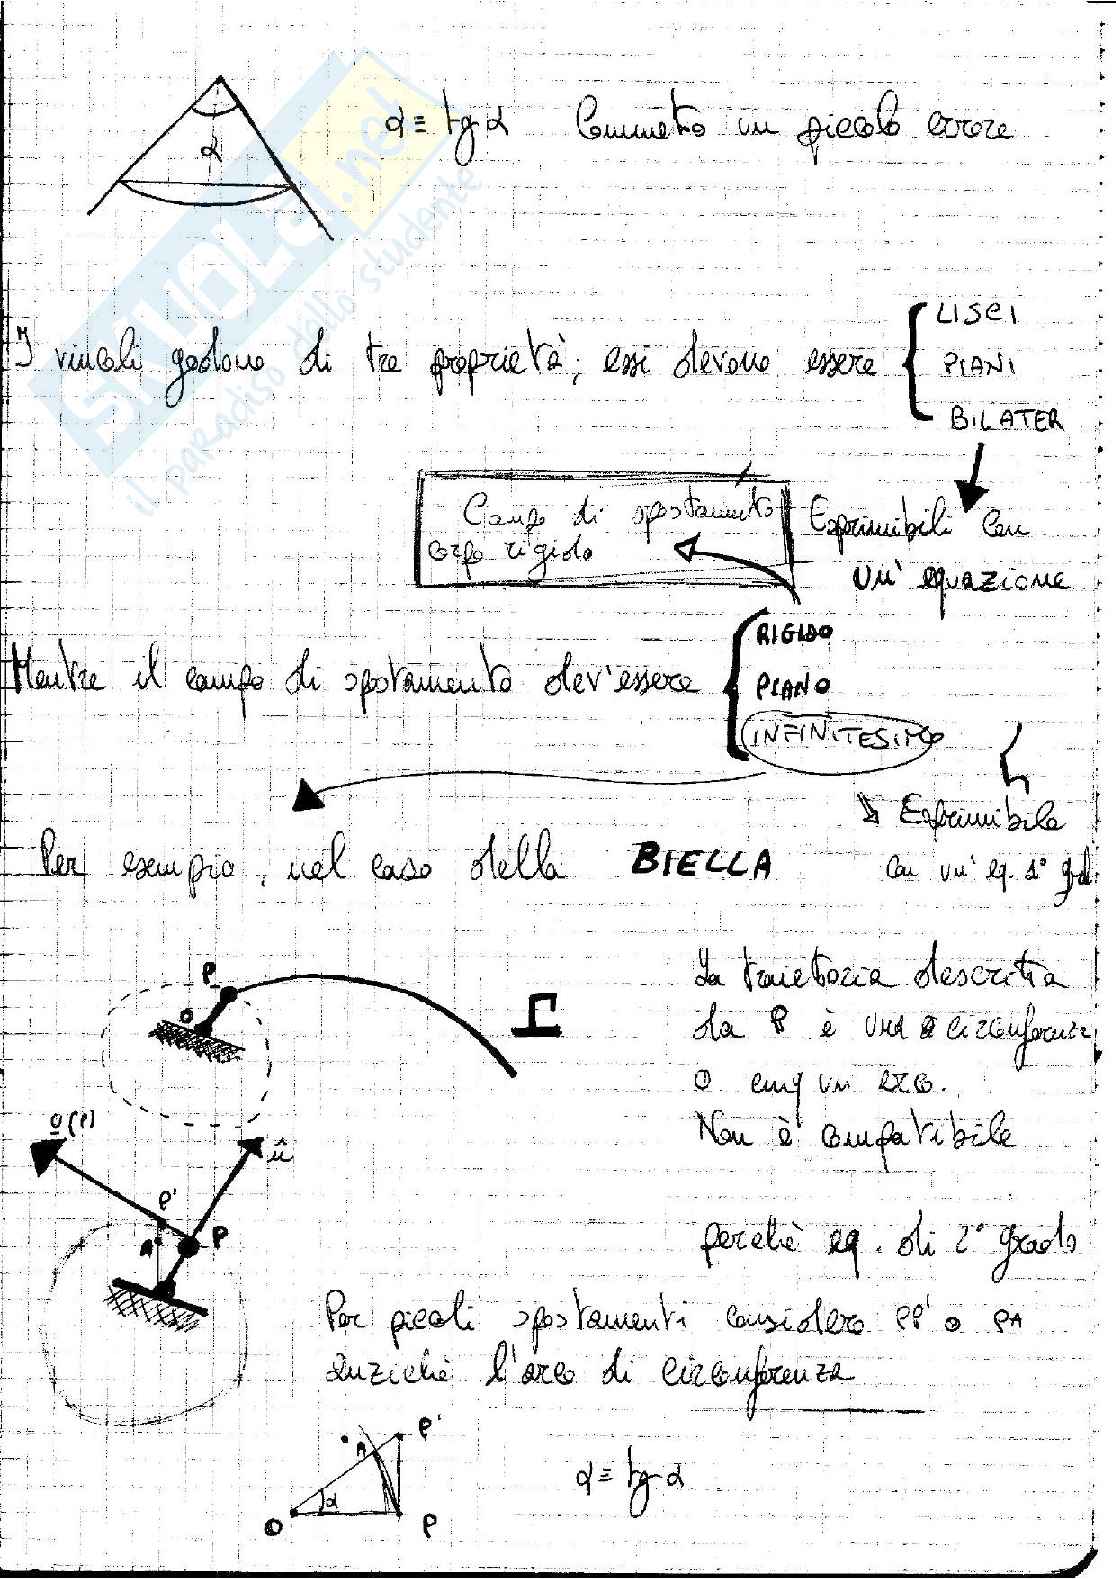 α ≡ tg α Commetto un piccolo errore
α
SKUOLA.net
il paradiso dello studente
I vincoli godono di tre proprietà; essi devono essere
LISCI
PIANI
BILATER
Campo di spostamento
corpo rigido
Esprimibili con
un' equazione
Mentre il campo di spostamento dev'essere
RIGIDO
PIANO
INFINITESIMO
Esprimibile
con un' eq. 1° grd.
Per esempio, nel caso della BIELLA
P
O
La traiettoria descritta
da P è una circonferenza
o cmq un arco.
Non è compatibile
perchè eq. di 2° grado
û
P'
A
P
Per piccoli spostamenti considero PP' o PA
anzichè l'arco di circonferenza
P'
A
α
O
P
α ≡ tg α